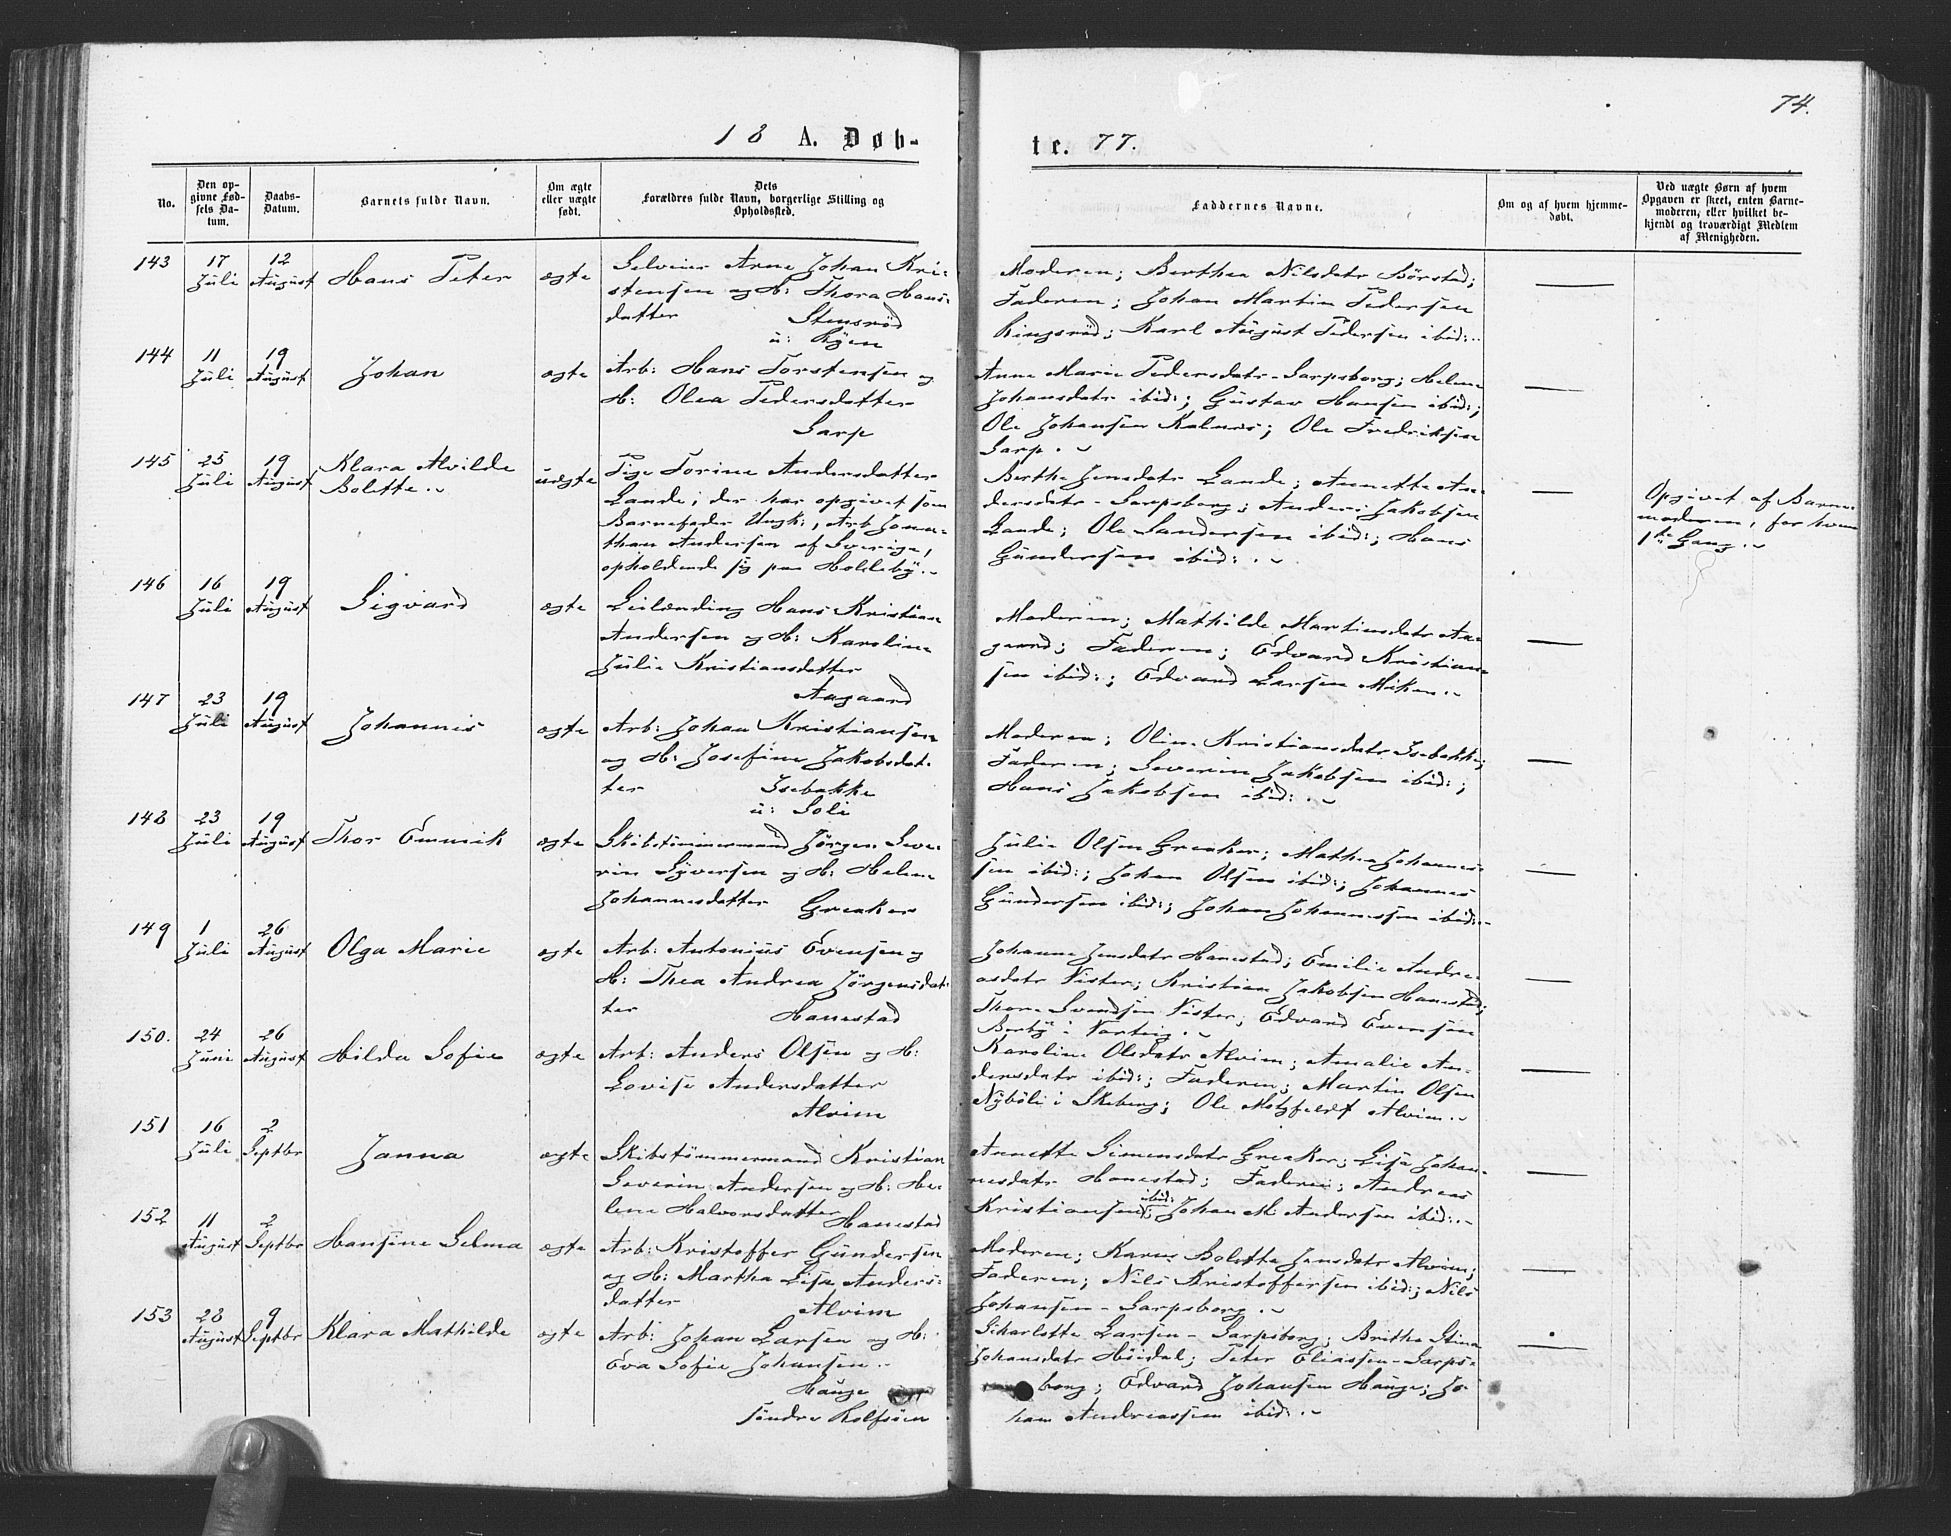 74.
18 A. Døb-
te. 77.
No.
Den op-
givne Fød-
sels Da-
tum.
Daabs-
Datum.
Barnets fulde Navn.
Om ægte
eller uægte
født.
Dets
Forældres fulde Navn, borgerlige Stilling og
Opholdssted.
Faddernes Navne.
Om og af hvem hjemme-
døbt.
Ved uægte Børn af hvem
Opgaven er skeet, enten Barne-
moderen, eller hvilket be-
kjendt og troværdigt Medlem
af Menigheden.
143 17 Juli 12 August Hans Peter ægte
Selveier Arne Johan Kri-
stensen og H: Thora Hans-
datter Stensrød
u:
Moderen; Berthea Nilsdatr Børstad;
Faderen; Johan Martin Pedersen
Ringsrød; Karl August Pedersen ibid:
144 11 Juli 19 August Johan ægte
Arb: Hans Torstensen og
H: Olea Pedersdatter
Sarp
Anne Marie Pedersdatr-Sarpsborg; Helene
Johansdatr ibid:; Gustav Hansen ibid:;
Ole Johansen Kalnæs; Ole Fredriksen
Sarp.
145 25 Juli 19 August Klara Alvilde
Bolette. uægte
Pige Torine Andersdatter
Lande; der har opgivet som
Barnefader Ungk:, Arb Jona-
than Andersen af Sverige,
opholdende sig paa Holleby.
Berthe Jensdatr Lande; Annette An-
dersdatr-Sarpsborg; Anders Jakobsen
Lande; Ole Sandersen ibid:; Hans
Gundersen ibid:.
Opgivet af Barne-
moderen, for hvem
1ste Gang.
146 16 Juli 19 August Sigvard ægte
Leilænding Hans Kristian
Andersen og H: Karoline
Julie Kristiansdatter
Aagaard
Moderen; Mathilde Martinsdatr Aa-
gaard; Faderen; Edvard Kristian-
sen ibid:; Edvard Larsen Miken.
147 23 Juli 19 August Johannes ægte
Arb: Johan Kristiansen
og H: Josefine Jakobsdat-
ter Isebakke
u: Soli
Moderen; Oline Kristiansdatr Isebakke;
Faderen; Severin Jakobsen ibid:;
Hans Jakobsen ibid:.
148 23 Juli 19 August Thor Emmik ægte
Skibstømmermand Jørgen Seve-
rin Syversen og H: Helene
Johannesdatter Greaker
Julie Olsen Greaker; Mathea Johannes-
sen ibid:; Johan Olsen ibid:; Johannes
Gundersen ibid:; Johan Johannessen ibid:.
149 1 Juli 26 August Olga Marie ægte
Arb: Antonius Evensen og
H: Thea Andrea Jørgensdat-
ter Hanestad
Johanne Jensdatr Hanestad; Emilie Andre-
asdatr Vister; Kristian Jakobsen Hanestad;
Thore Svendsen Vister; Edvard Evensen
i Varteig.
150. 24 Juni 26 August Hilda Sofie ægte
Arb: Anders Olsen og H:
Lovise Andersdatter
Alvim
Karoline Olsdatr Alvim; Amalie An-
dersdatr ibid:; Faderen; Martin Olsen
Nyböli i Skeberg; Ole Motzfeldt Alvim.
151 16 Juli 2 Septbr Janna ægte
Skibstømmermand Kristian
Severin Andersen og H: He-
lene Halvorsdatter Hanestad
Annette Simensdatr Greaker; Lisa Johan-
nesdatr Hanestad; Faderen; Andreas
Kristiansen ibid:; Johan M Andersen ibid:.
152 11 August 2 Septbr Hansine Selma ægte
Arb: Kristoffer Gundersen
og H: Martha Lisa Anders-
datter Alvim
Moderen; Karen Bolette Jensdatr Alvim;
Faderen; Nils Kristoffersen ibid:; Nils
Johansen-Sarpsborg.
153 28 August 9 Septbr Klara Mathilde ægte
Arb: Johan Larsen og H:
Eva Sofie Johansen.
Hauge
søndre Rolfsøen
Scharlotte Larsen-Sarpsborg; Brithe Stina
Johansdatr Höidal; Peter Eliassen-Sarps-
borg; Edvard Johansen Hauge; Jo-
han Andreassen ibid:.